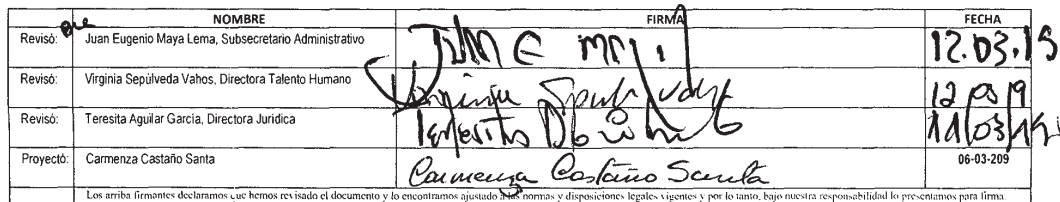 NOMBRE FIRMA FECHA
Revisó: Juan Eugenio Maya Lema, Subsecretario Administrativo 12.03.19
Revisó: Virginia Sepúlveda Vahos, Directora Talento Humano Virginia Sepulv Vahos 12 03 19
Revisó: Teresita Aguilar Garcia, Directora Jurídica Teresita 11/03/19
Proyectó: Carmenza Castaño Santa Carmenza Castaño Santa 06-03-209
Los arriba firmantes declaramos que hemos revisado el documento y lo encontramos ajustado a las normas y disposiciones legales vigentes y por lo tanto, bajo nuestra responsabilidad lo presentamos para firma.